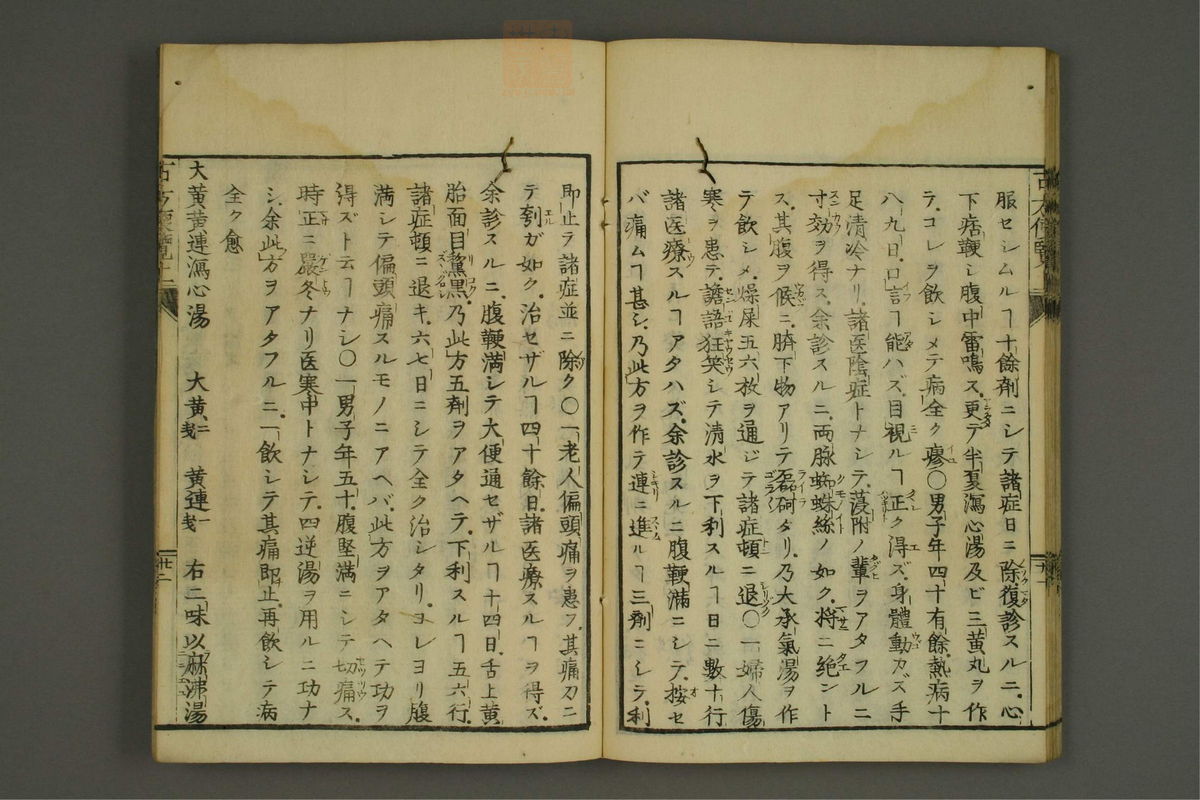 服セシムルヿ十餘剤ニシテ諸症日ニ除復診スルニ、心
下痞鞕シ腹中雷鳴ス。更ニ半夏瀉心湯及ビ三黄丸ヲ作
テ、コレヲ飲シメテ病全ク瘳〇男子年四十有餘、熱病十
八九日、口言フヿ能ハズ、目視ルヿ正ク得ズ、身體動カズ手
足清冷ナリ、諸医陰症トナシテ、薓附ノ輩ヲアタフルニ
寸効ヲ得ス、余診スルニ、両脉蜘蛛絲ノ如ク、将ニ絶ント
ス、其腹ヲ候ニ、臍下物アリテ磊砢タリ、乃大承氣湯ヲ作
テ飲シメ、燥屎五六枚ヲ通ジテ諸症頓ニ退〇一婦人傷
寒ヲ患テ、譫語狂笑シテ清水ヲ下利スルヿ日ニ數十行
諸医療スルヿアタハズ、余診スルニ腹鞕滿ニシテ、按セ
バ痛ムヿ甚シ、乃此方ヲ作テ連ニ進ルヿ三劑ニシテ、利
即止テ諸症並ニ除ク〇一老人偏頭痛ヲ患フ、其痛刀ニ
テ刳ガ如ク、治セザルヿ四十餘日、諸医療スルヿヲ得ズ、
余診スルニ、腹鞕満シテ大便通セザルヿ十四日、舌上黄
胎面目黧黒、乃此方五剤ヲアタヘテ、下利スルヿ五六行、
諸症頓ニ退キ、六七日ニシテ全ク治シタリ、ヨレヨリ腹
満シテ偏頭痛スルモノニアヘバ、此方ヲアタヘテ功ヲ
得ズト云ヿナシ〇一男子年五十、腹堅満ニシテ切痛ス、
時正ニ嚴冬ナリ医寒中トナシテ、四逆湯ヲ用ルニ功ナ
シ、余此方ヲアタフルニ、一飲シテ其痛即止、再飲シテ病
全ク愈
大黄黄連瀉心湯 大黄二戔 黄連一戔 右二味以麻沸湯
廿二